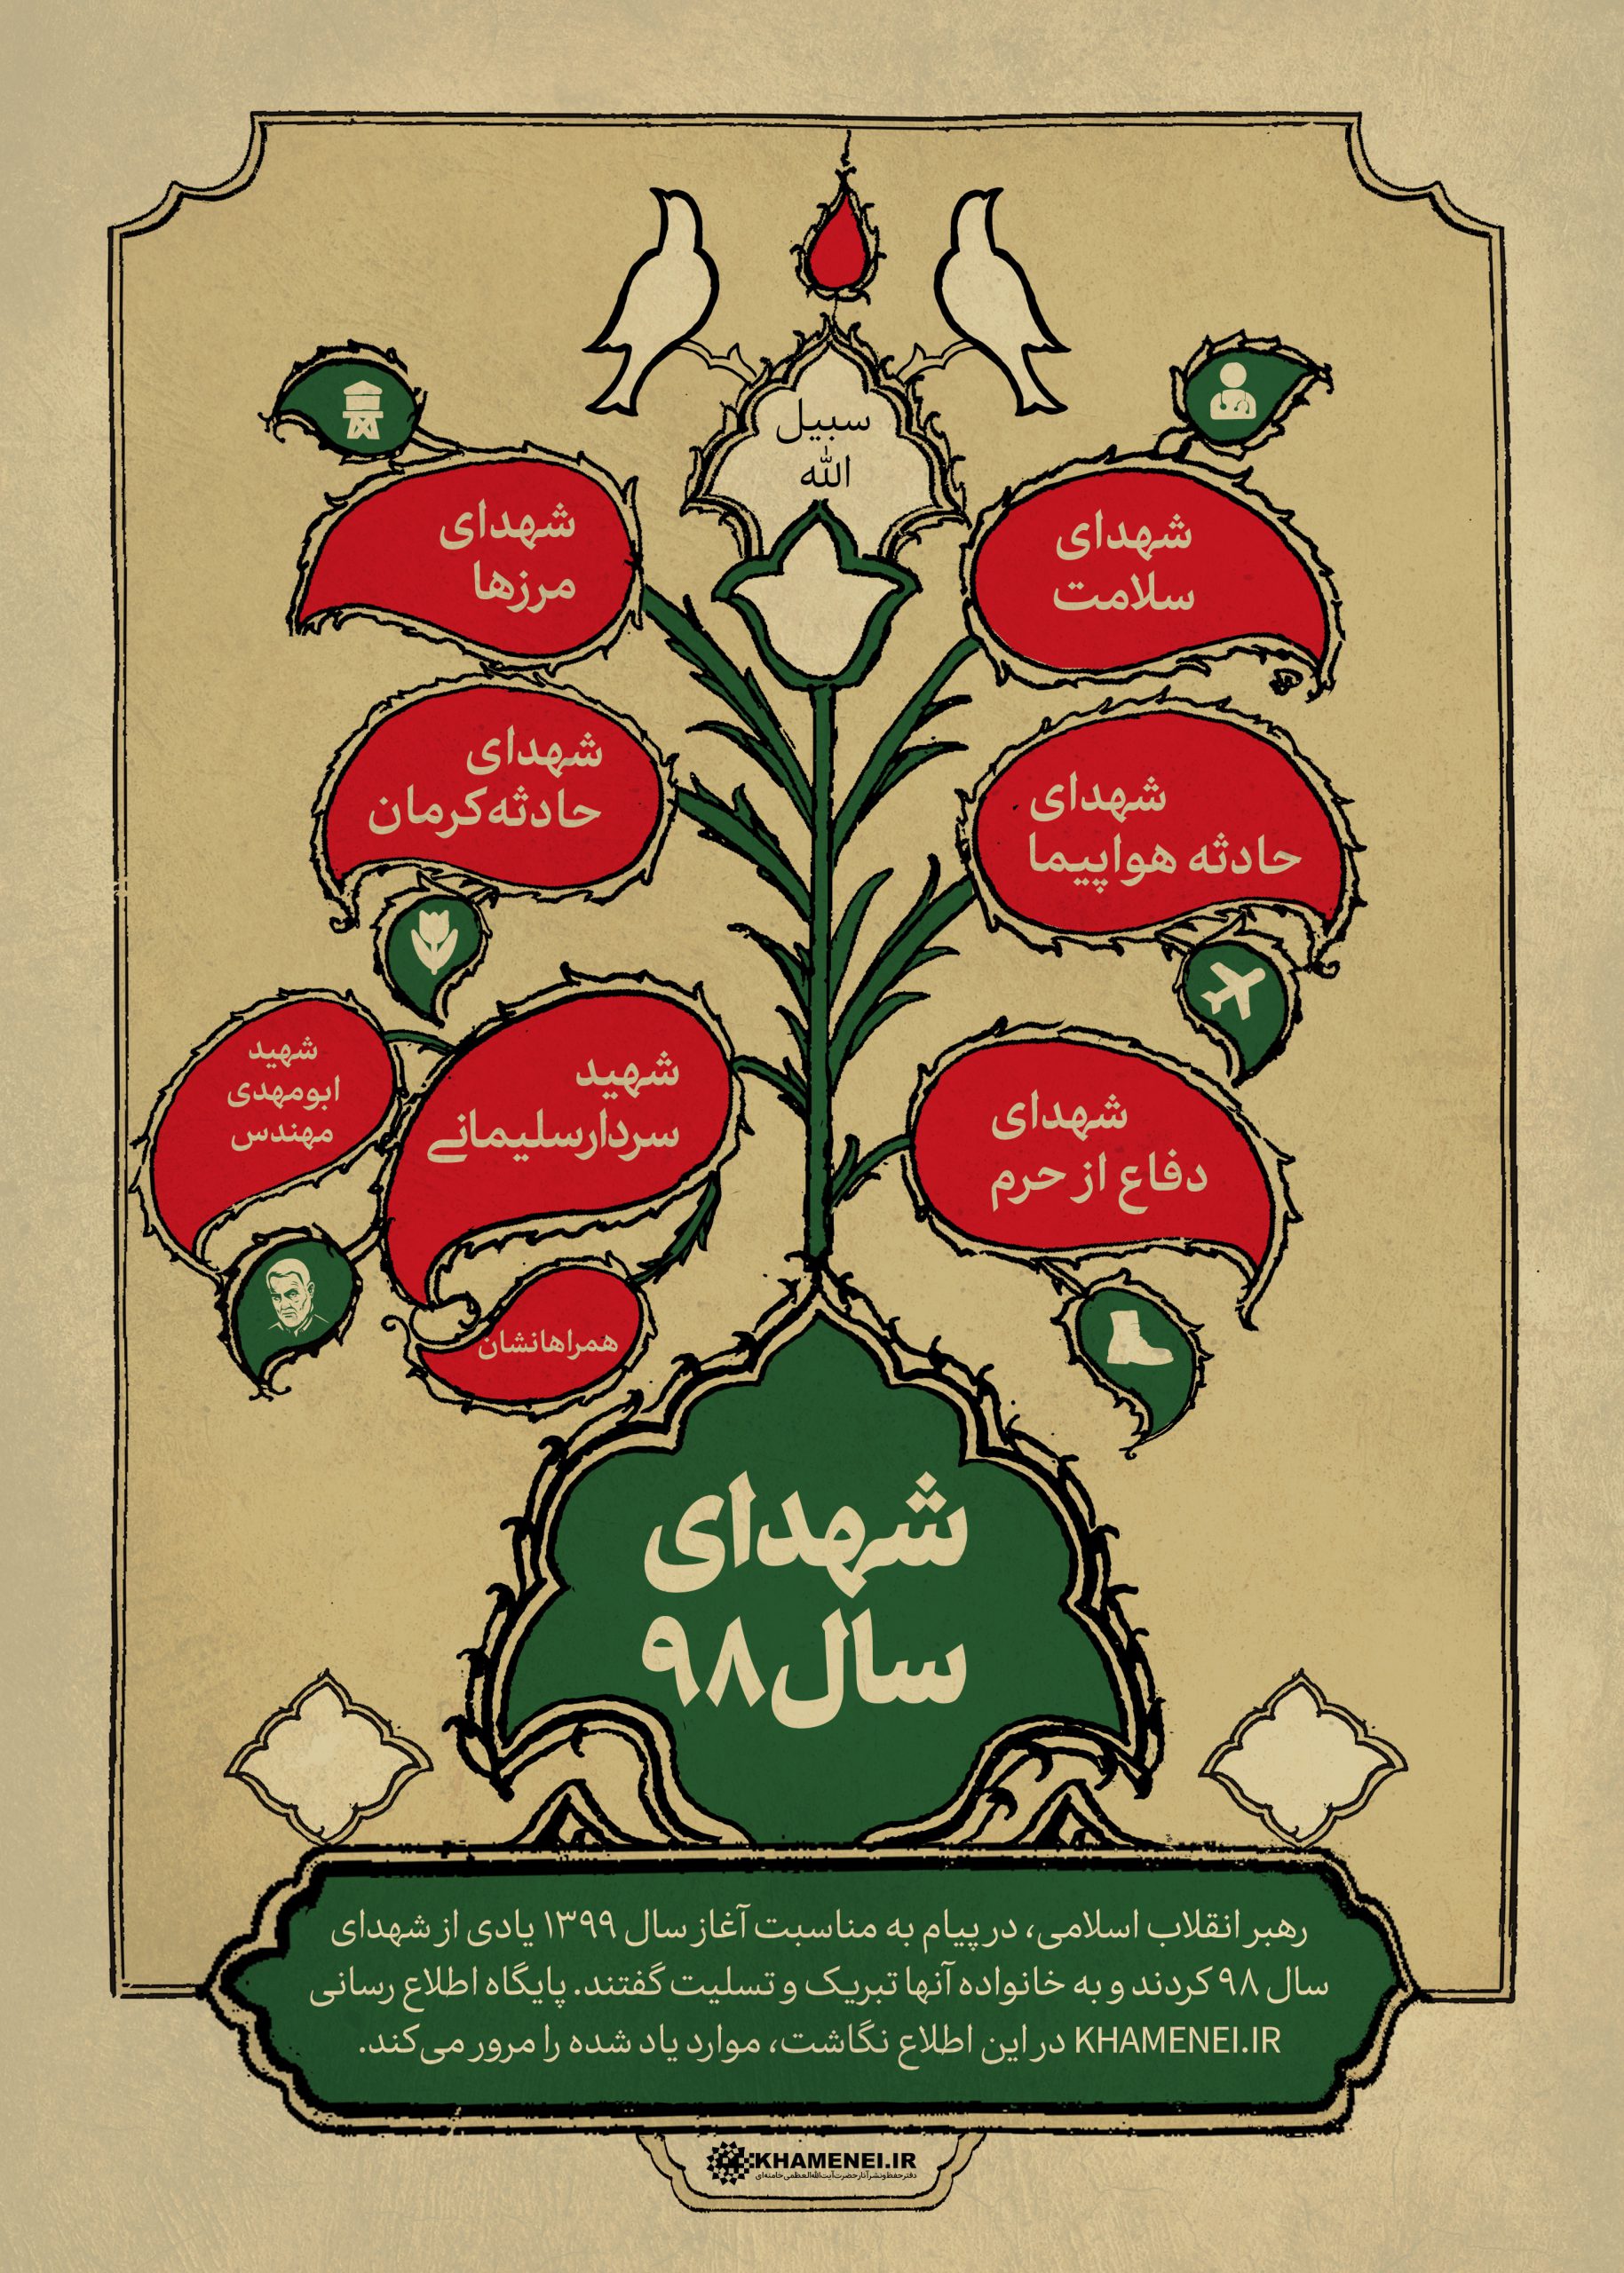 سبیل
الله
شهدای
سلامت
شهدای
مرزها
شهدای
حادثه هواپیما
شهدای
حادثه‌کرمان
شهدای
دفاع از حرم
شهید
سردارسلیمانے
شهید
ابومهدی
مهندس
همراهانشان
شهدای
سال۹۸
رهبر انقلاب اسلامی، در پیام به مناسبت آغاز سال ۱۳۹۹ یادی از شهدای
سال ۹۸ کردند و به خانواده آنها تبریک و تسلیت گفتند. پایگاه اطلاع رسانی
KHAMENEI.IR در این اطلاع نگاشت، موارد یاد شده را مرور می‌کند.
KHAMENEI.IR
دفتر حفظ و نشر آثار حضرت آیت‌الله‌العظمی خامنه‌ای